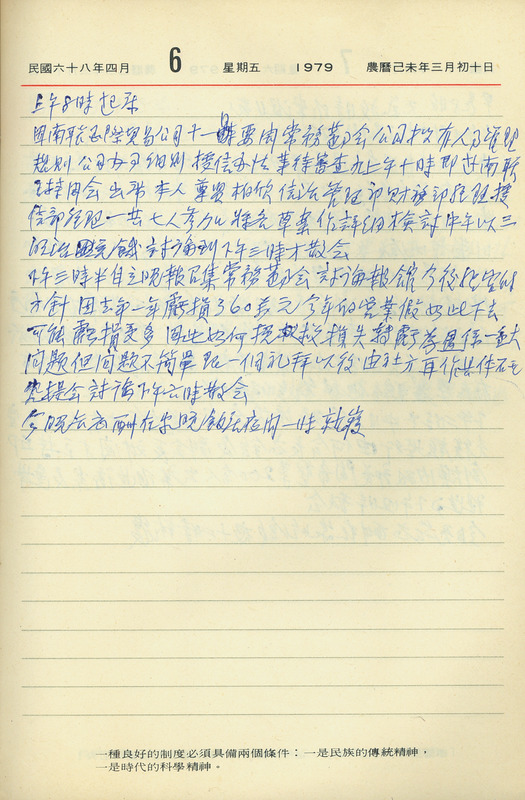 民國六十八年四月 6 星期五 1979 農曆己未年三月初十日
上午8時起床
因南聯國際貿易公司十一時要開常務董事會公司擬有人事管理
規則公司辦事細則授信辦法等待審查九上午十時即赴南聯
開會出席本人 柏欣 管理部財務部經理授
信部經理一共七人參加 草案作詳細檢討中午以三
明治 討論到下午三時才散會
下午三時半自立晚報召集常務董事會討論報館今後經營的
方針因去年一年虧損360萬元今年的營業做如此下去
可能虧損更多因此如何挽救損失轉虧為盈信一重大
問題但問題不簡單 一個禮拜以後由社方再作具体
提會討論下午六時散會
今晚無應酬在家晚飯 夜間一時就寢
一種良好的制度必須具備兩個條件：一是民族的傳統精神，
一是時代的科學精神。